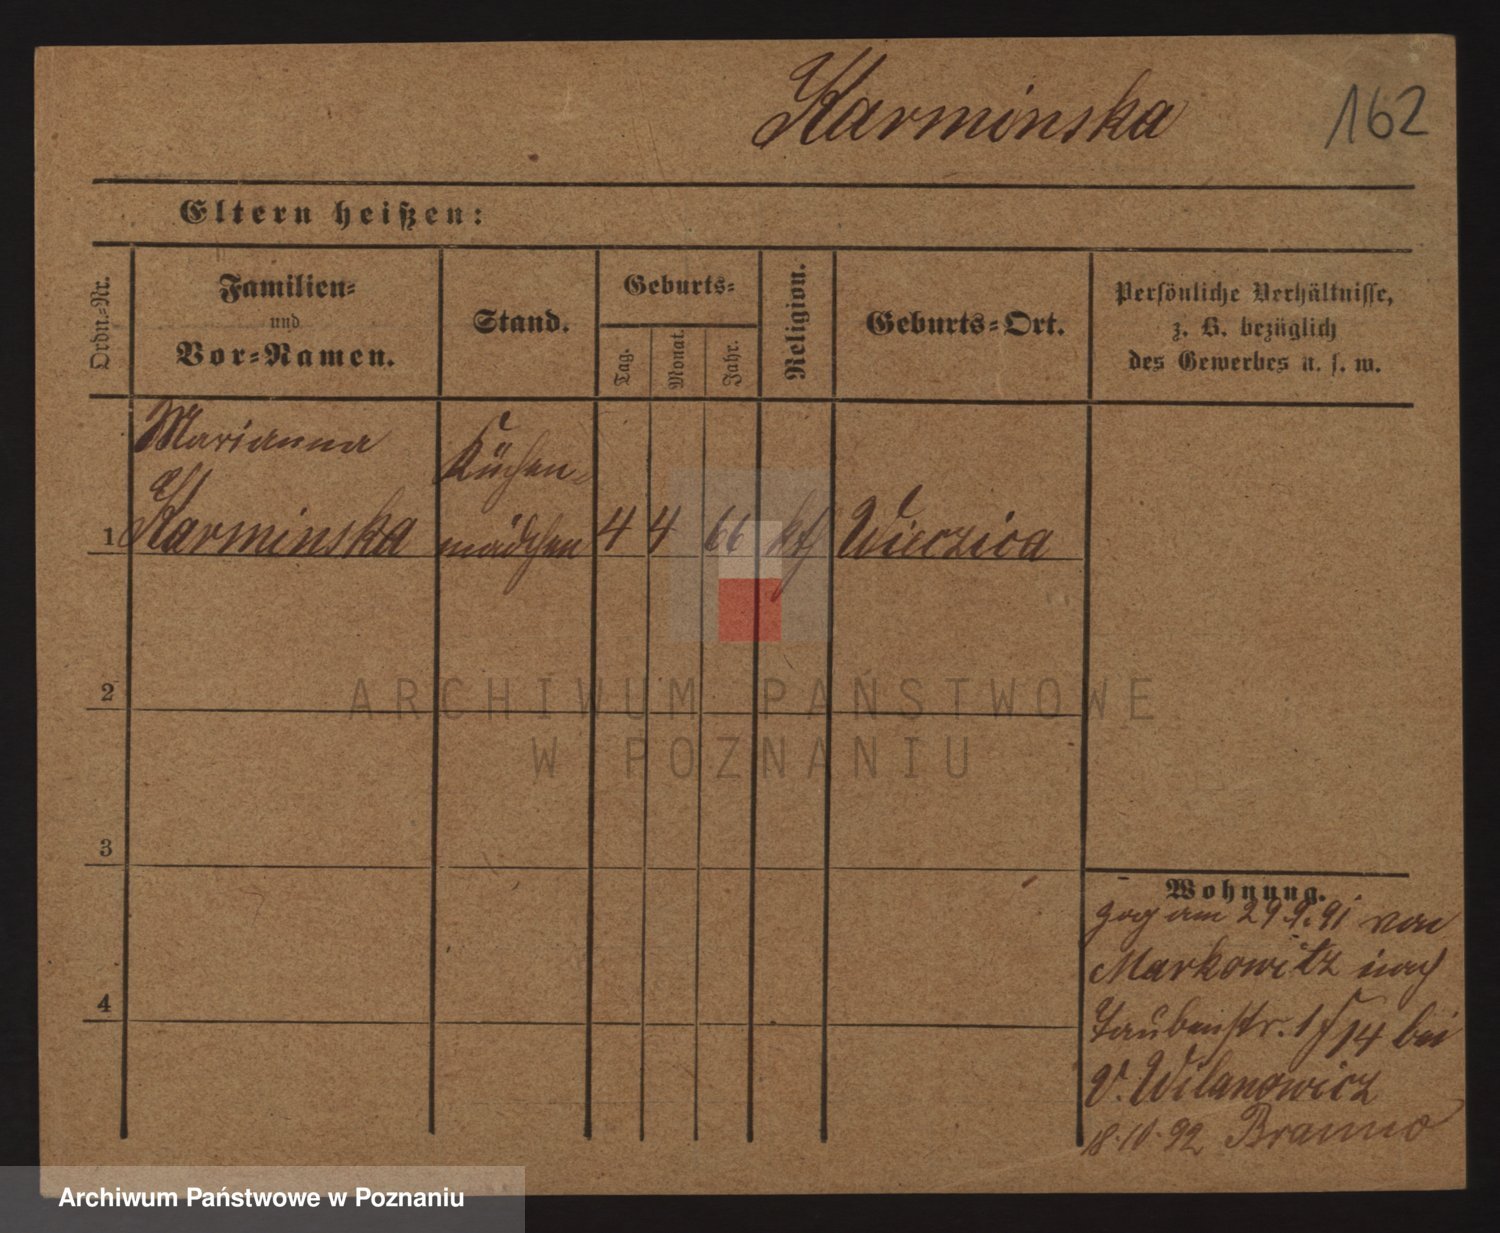 Karminska
162
Eltern heißen:
Ordn.-Nr.
Familien-
und
Vor-Namen.
Stand.
Geburts-
Tag.
Monat.
Jahr.
Religion.
Geburts-Ort.
Persönliche Verhältnisse,
z. B. bezüglich
des Gewerbes u. s. w.
Marianna
Karminska
Küchen-
mädchen
1
4 4 66 kth Wierzica
2
3
4
Wohnung.
zog am 29.9.91 von
Markowitz nach
Taubenstr. bei
V. Wilanowicz
18.10.92
ARCHIWUM PAŃSTWOWE
W POZNANIU
Archiwum Państwowe w Poznaniu